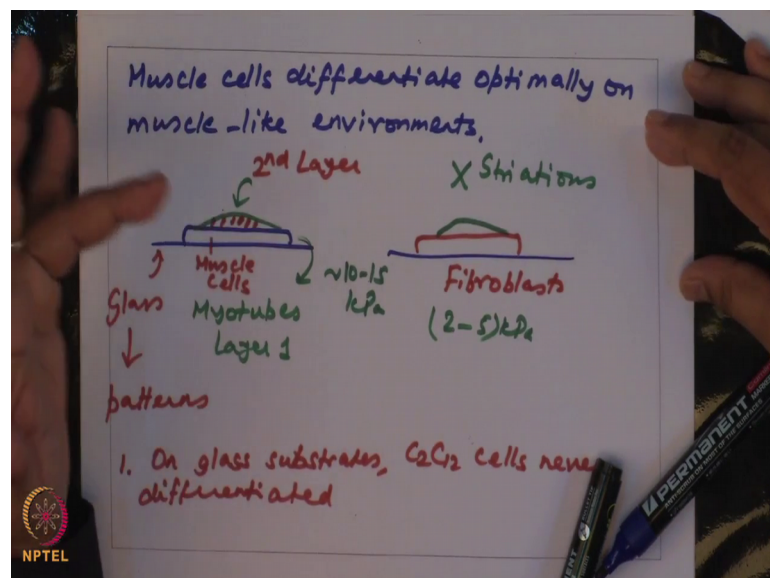 Muscle cells differentiate optimally on
muscle-like environments.
2nd Layer
X Striations
Muscle
cells
Glass
Myotubes
Layer 1
~10-15
kPa
Fibroblasts
(2-5) kPa
patterns
1. On glass substrates, C2C12 cells never
differentiated
PERMANENT
NPTEL